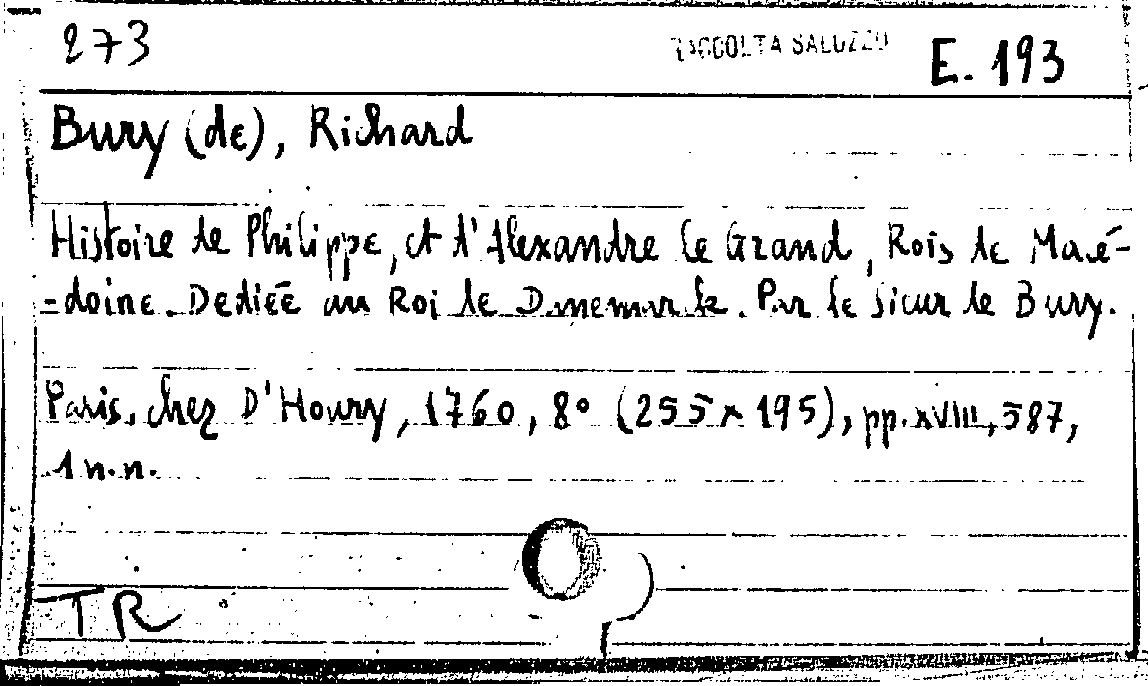 273
RACCOLTA SALUZZO
E. 193
Bury (de), Richard
Histoire de Philippe, et d'Alexandre le Grand, Rois de Macé-
=doine. Dediée au Roi de Danemark. Par le Sieur de Bury.
Paris, chez D'Houry, 1760, 8° (255 x 195), pp. XVIII, 587,
1 n.n.
TR